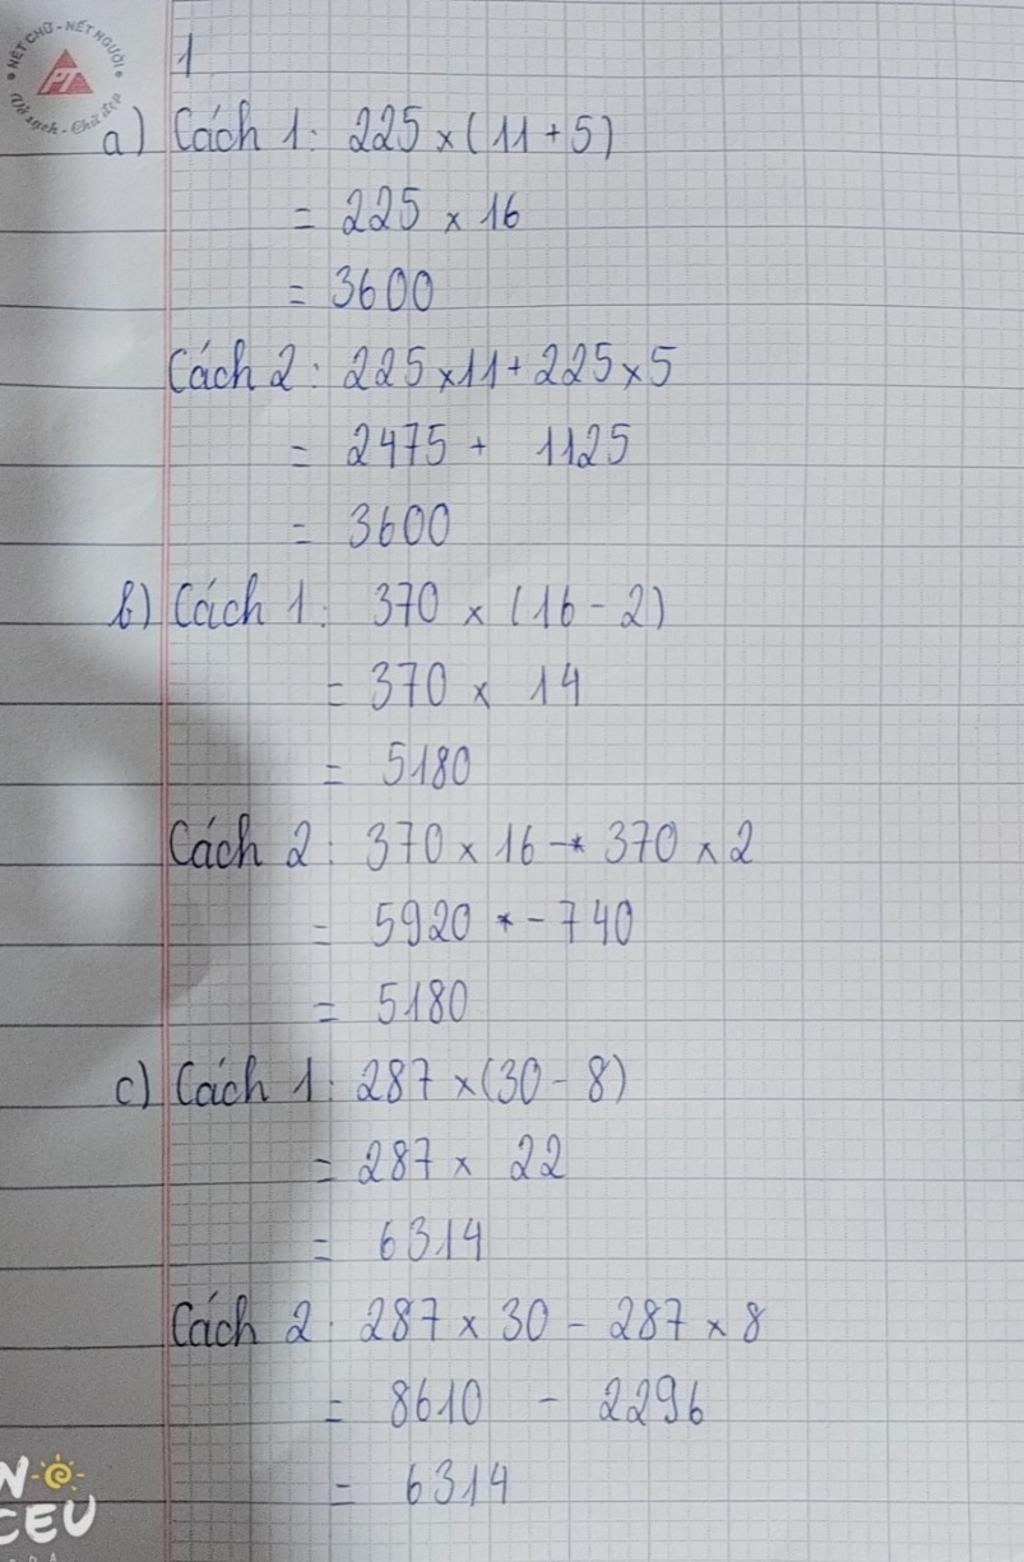 NÉT CHỮ - NẾT NGƯỜI
PT
Vở sạch - Chữ đẹp
1
a) Cách 1: 225 x (11 + 5)
= 225 x 16
= 3600
Cách 2: 225 x 11 + 225 x 5
= 2475 + 1125
= 3600
b) Cách 1: 370 x (16 - 2)
= 370 x 14
= 5180
Cách 2: 370 x 16 - 370 x 2
= 5920 - 740
= 5180
c) Cách 1: 287 x (30 - 8)
= 287 x 22
= 6314
Cách 2: 287 x 30 - 287 x 8
= 8610 - 2296
= 6314
CEU